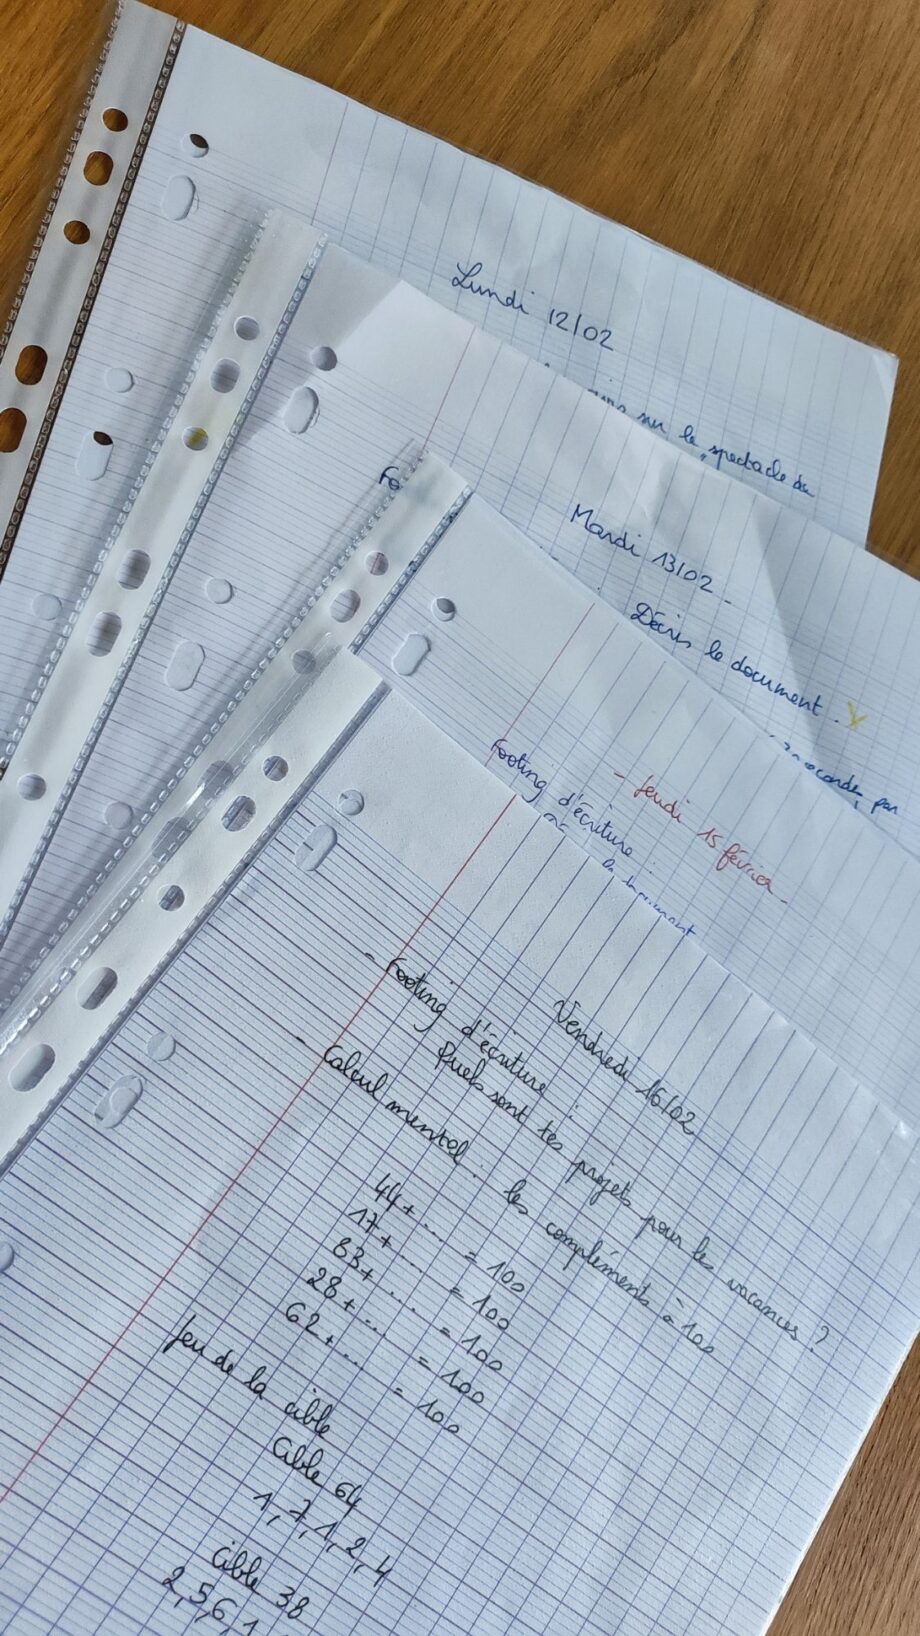 Lundi 12/02
sur le spectacle du
Mardi 13/02.
Fo
Décris le document.
par
- Jeudi 15 février -
Footing d'écriture :
- Vendredi 16/02
- Footing d'écriture :
Quels sont tes projets pour les vacances ?
- Calcul mental : les compléments à 100
44 + ... = 100
17 + ... = 100
83 + ... = 100
28 + ... = 100
62 + ... = 100
Jeu de la cible
Cible 64
1, 7, 1, 2, 4
Cible 38
2, 5, 6, 1